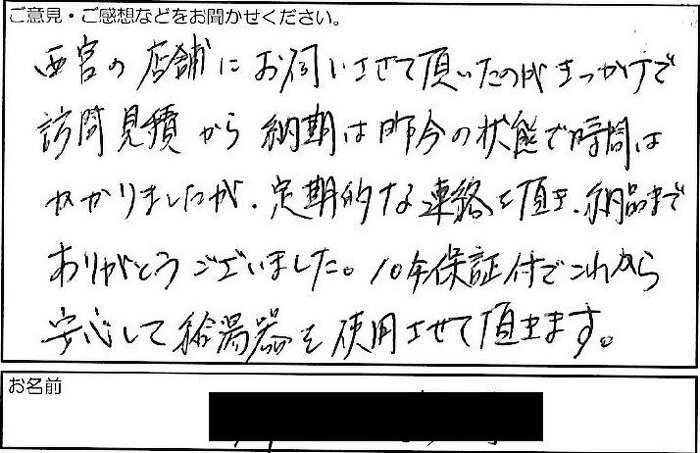 ご意見・ご感想などをお聞かせください。
西宮の店舗にお伺いさせて頂いたのがきっかけで
訪問見積から納期は昨今の状態で時間は
かかりましたが、定期的な連絡を頂き、納品まで
ありがとうございました。10年保証付でこれから
安心して給湯器を使用させて頂きます。
お名前